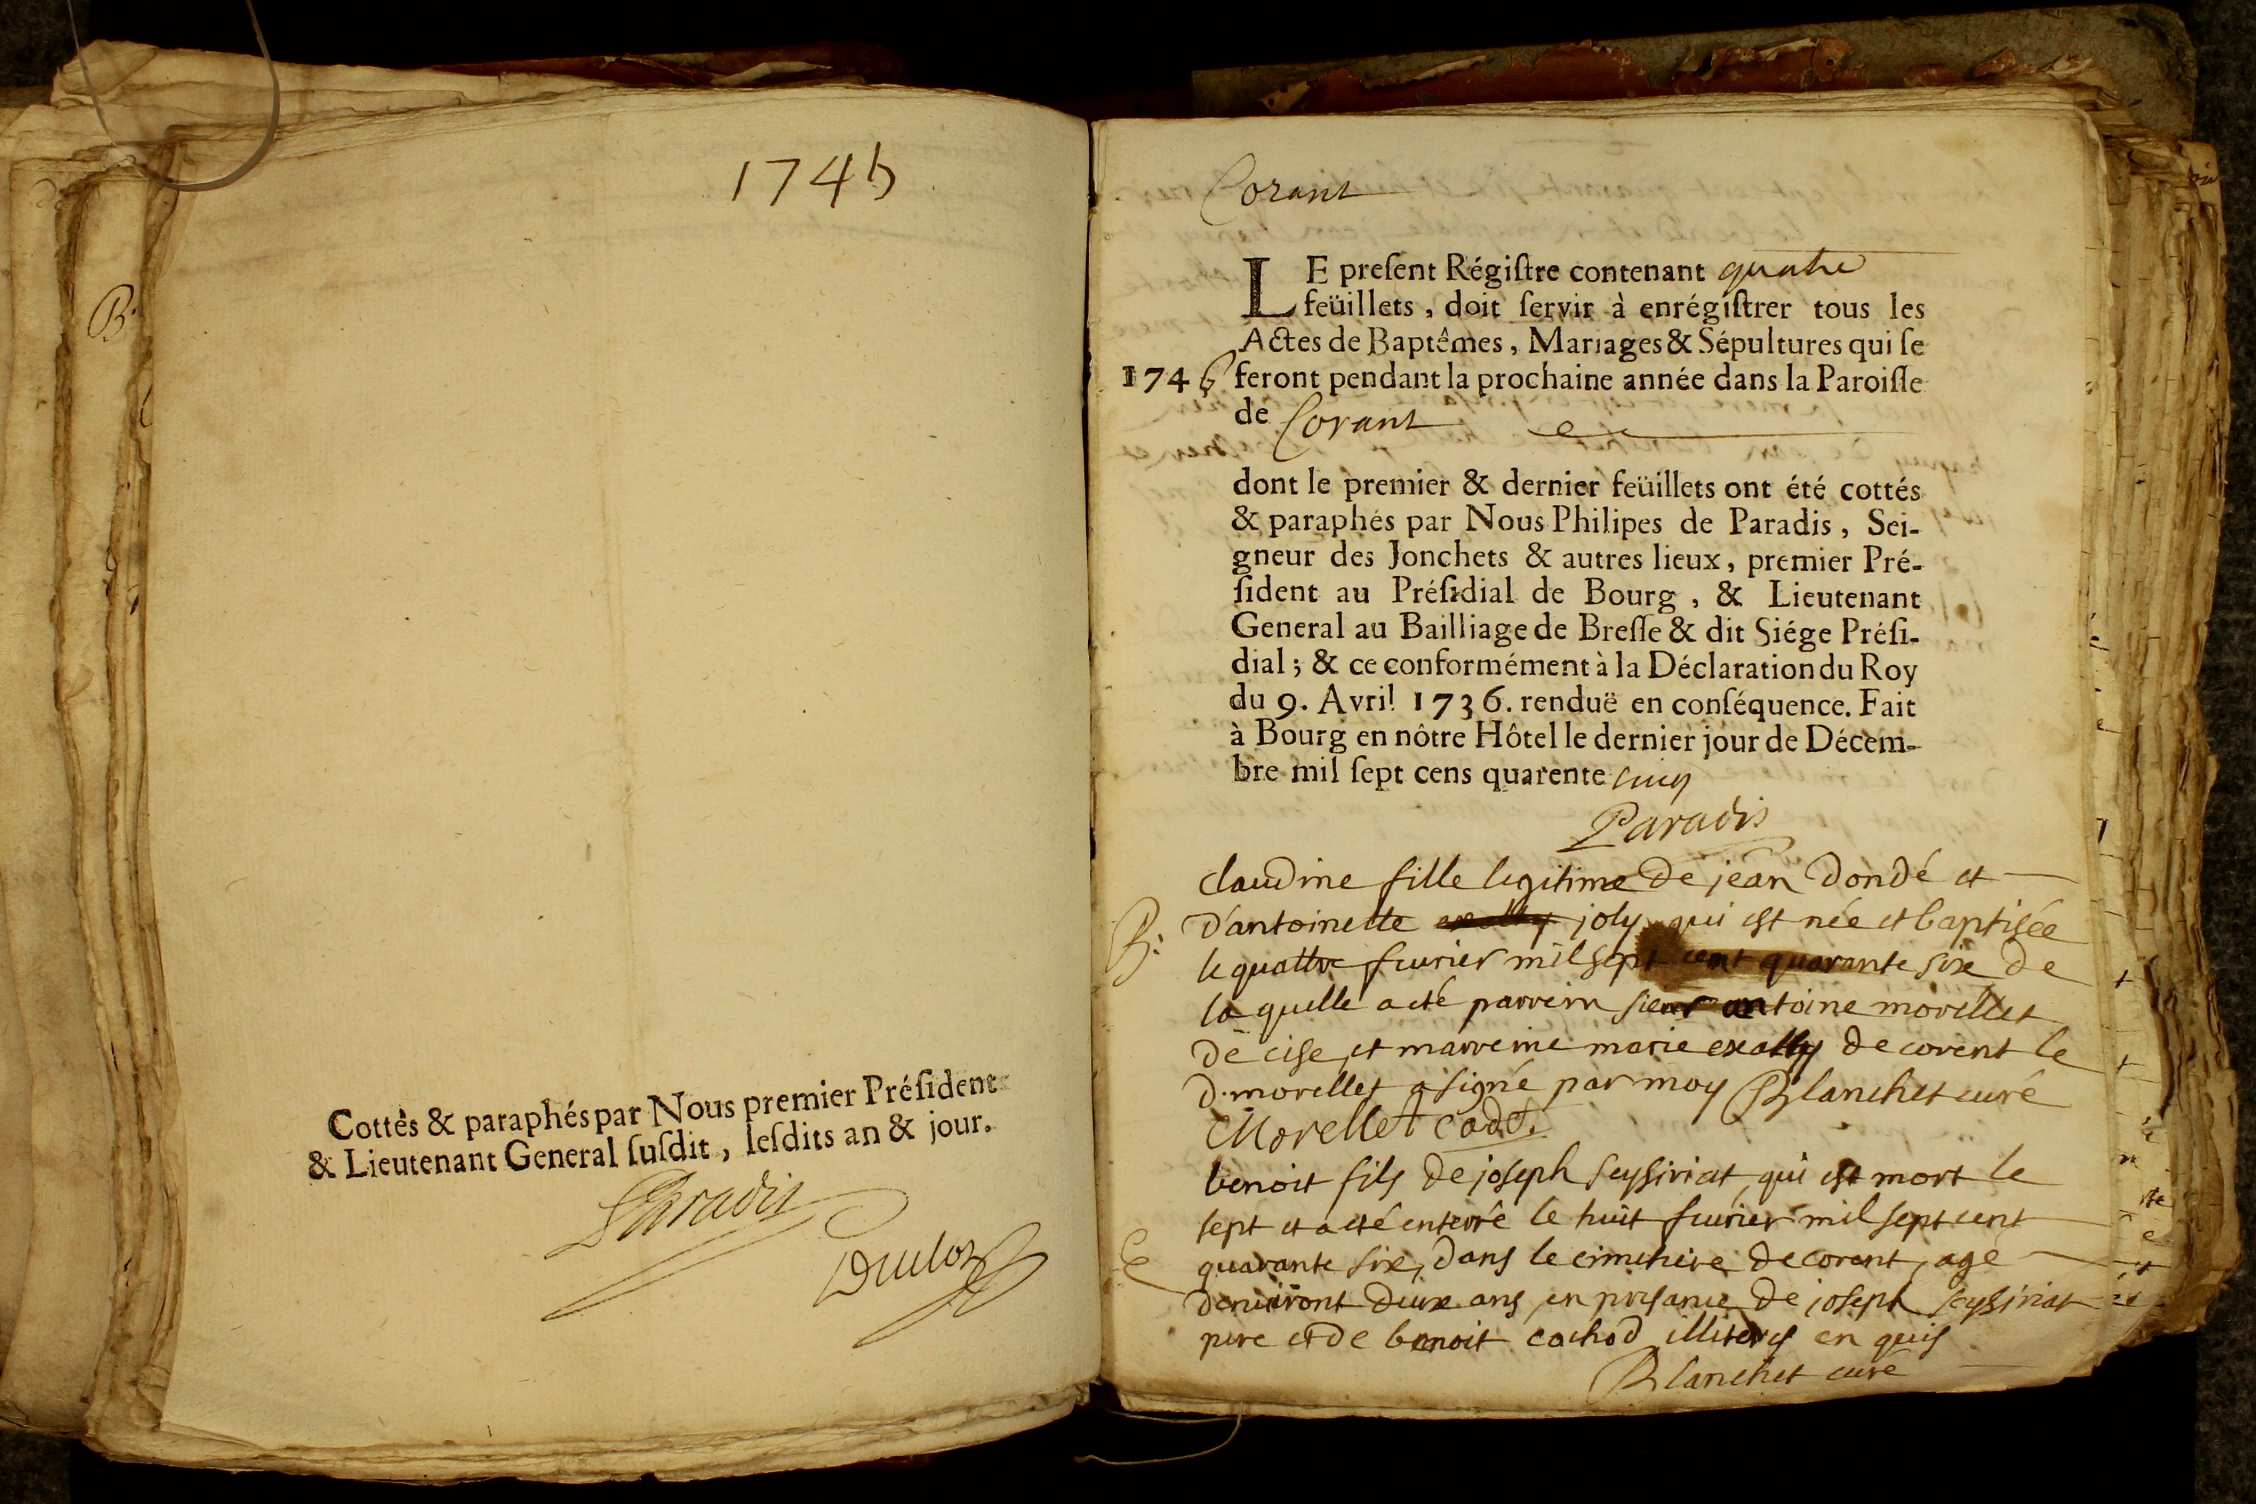 1745
Cottés & paraphés par Nous premier Préſident
& Lieutenant General ſuſdit, leſdits an & jour.
Paradis
B.
Corant
LE preſent Régiſtre contenant quatre
feüillets, doit ſervir à enrégiſtrer tous les
Actes de Baptêmes, Mariages & Sépultures qui ſe
1746 feront pendant la prochaine année dans la Paroiſſe
de Corant
dont le premier & dernier feüillets ont été cottés
& paraphés par Nous Philipes de Paradis, Sei-
gneur des Jonchets & autres lieux, premier Pré-
ſident au Préſidial de Bourg, & Lieutenant
General au Bailliage de Breſſe & dit Siége Préſi-
dial; & ce conformément à la Déclaration du Roy
du 9. Avril 1736. renduë en conſéquence. Fait
à Bourg en nôtre Hôtel le dernier jour de Décem-
bre mil ſept cens quarente cinq
Paradis
claudine fille legitime de jean dondé et
B: d'antoinette joly qui est née et baptisée
le quattre fevrier mil sept cent quarante six de
la quelle a eté parrein sieur antoine morellet
de cise et marreine marie exally de corent le
d. morellet a signé par moy Blanchet curé
Morellet cadt.
benoit fils de joseph seyssiriat qui est mort le
sept et a eté enterré le huit fevrier mil sept cent
quarante six, dans le cimetiere de corent, agé
denviront deux ans, en presance de joseph seyssiriat
pere et de benoit cochod illiterés en quis
Blanchet curé